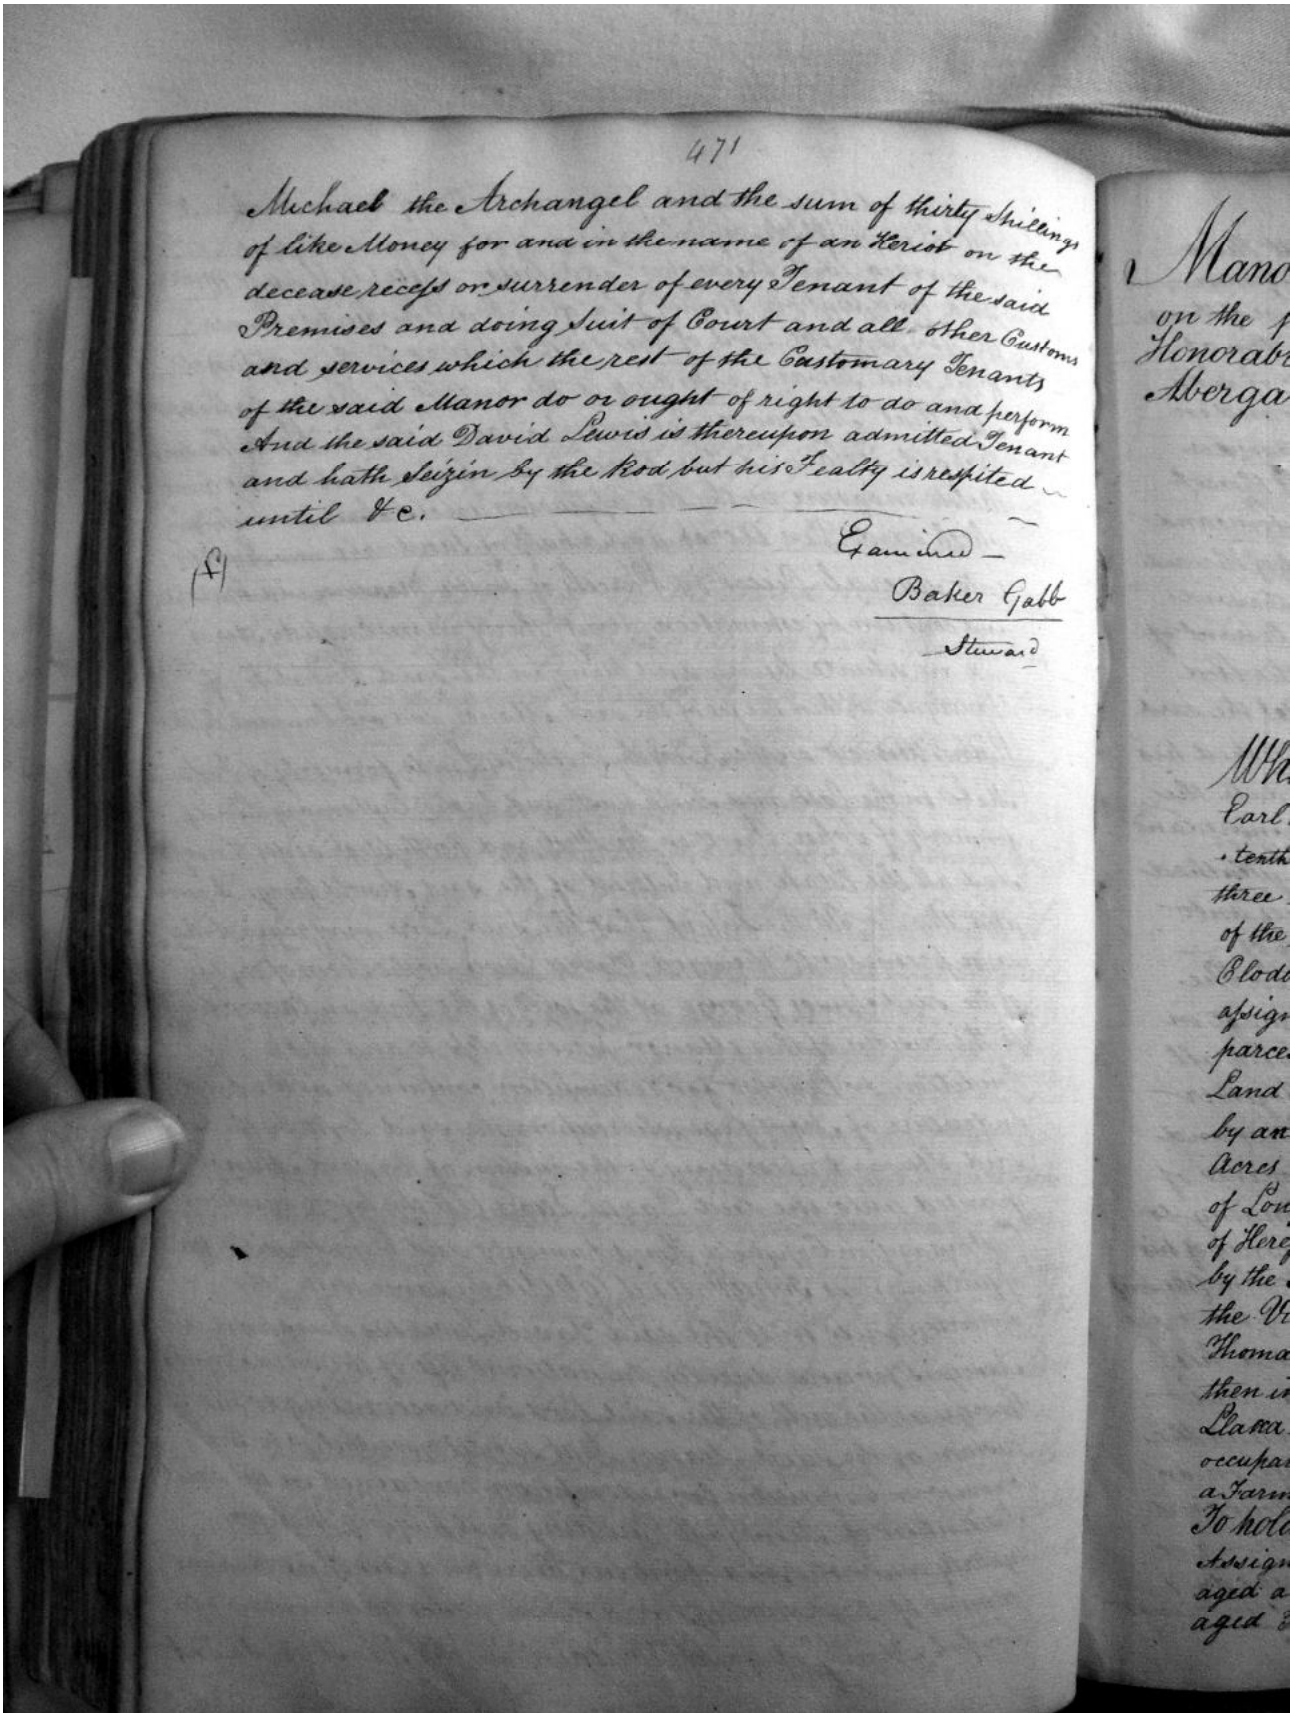 471
Michael the Archangel and the sum of thirty Shillings
of like Money for and in the name of an Heriot on the
decease recess or surrender of every Tenant of the said
Premises and doing Suit of Court and all other Customs
and services which the rest of the Customary Tenants
of the said Manor do or ought of right to do and perform
And the said David Lewis is thereupon admitted Tenant
and hath Seizin by the Rod but his Fealty is respited
until &c.
Examined
Baker Gabb
Steward
Mano
on the
Honorab
Aberga
Wh
Earl
tenth
three
of the
Clod
assign
parce
Land
by an
Acres
of Lon
of Heref
by the
the Vi
Thoma
then in
Llan
occupa
a Farm
To hold
Assign
aged a
aged